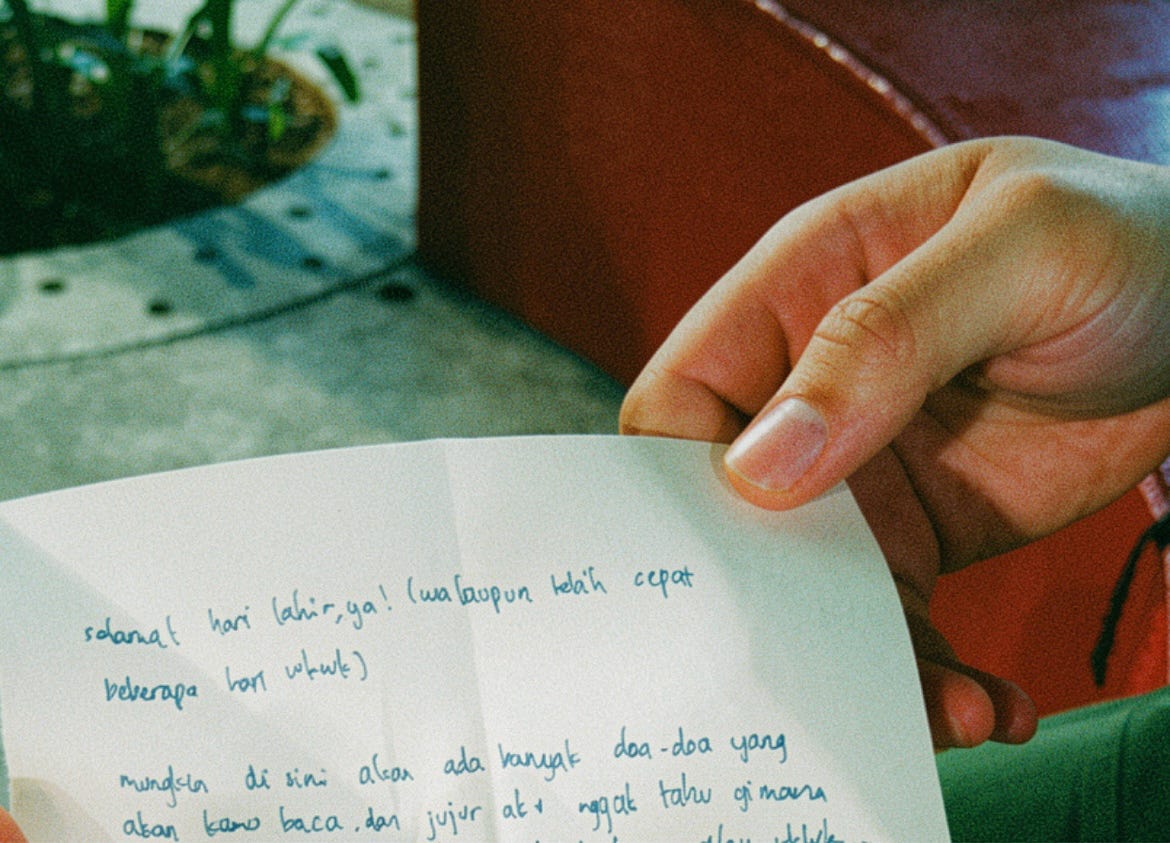 selamat hari lahir, ya! (walaupun lebih cepat
beberapa hari wkwk)
mungkin di sini akan ada banyak doa-doa yang
akan kamu baca. dan jujur aku nggak tahu gimana